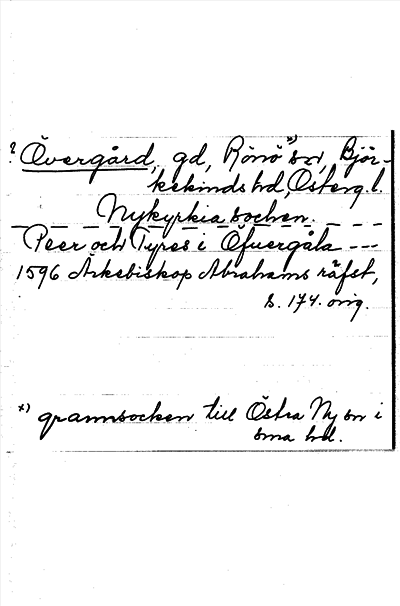 ? Övergård, gd, Rönö *) sn, Björ-
kekinds hd, Österg. l.
Nykyrkia sochen.
Peer och Tyres i Öfuergåla ---
1596 Ärkebiskop Abrahams räfst,
s. 174. orig.
*) grannsocken till Östra Ny sn i
sma hd.